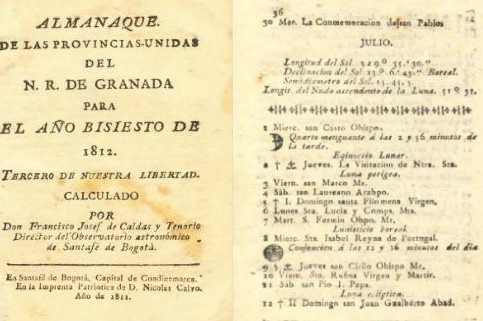 ALMANAQUE.
DE LAS PROVINCIAS-UNIDAS
DEL
N. R. DE GRANADA
PARA
EL AÑO BISIESTO DE
1812.
TERCERO DE NUESTRA LIBERTAD.
CALCULADO
POR
Don Francisco Josef de Caldas y Tenorio
Director del Observatorio astronómico
de Santafé de Bogotá.
En Santafé de Bogotá, Capital de Condinamarca.
En la Imprenta Patriótica de D. Nicolas Calvo.
Año de 1811.
36
30 Mar. La Conmemoracion de san Pablo.
JULIO.
Longitud del Sol
Declinacion del Sol Boreal.
Semidiametro del Sol
Longit. del Nodo ascendente de la Luna.
1 Mierc. san Casto Obispo.
Quarto menguante a las 2 y 56 minutos de
la tarde.
Equinoccio Lunar.
2 Jueves. La Visitacion de Ntra. Sra.
Luna perigea.
3 Viern. san Marco Mr.
4 Sáb. san Laureano Arzbpo.
5 I. Domingo santa Filomena Virgen,
6 Lunes Sta. Lucia y Comps. Mrs.
Mart. S. Fermin Obpo. Mr.
Lunisticio boreal.
8 Mierc. Sta. Isabel Reyna de Portugal.
Conjuncion a las 12 y 36 minutos del dia
9 Jueves san Obispo Mr.
10 Viern. Sta. Rufina Virgen y Martir.
11 Sáb. san Pio I. Papa.
Luna ecliptica.
12 II Domingo san Juan Gualberto Abad.